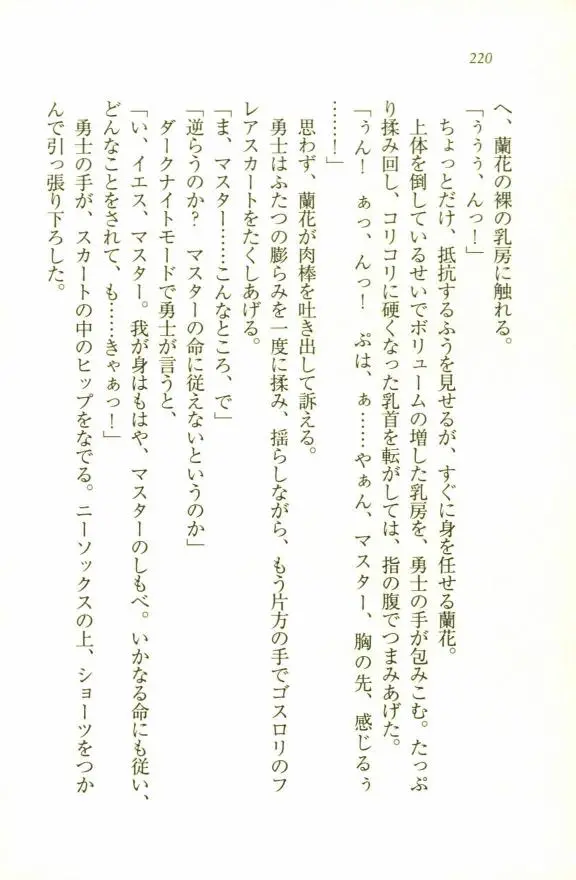 220
へ、蘭花の裸の乳房に触れる。
「ぅぅぅ、んっ！」
ちょっとだけ、抵抗するふうを見せるが、すぐに身を任せる蘭花。
上体を倒しているせいでボリュームの増した乳房を、勇士の手が包みこむ。たっぷ
り揉み回し、コリコリに硬くなった乳首を転がしては、指の腹でつまみあげた。
「ぅん！　ぁっ、んっ！　ぷは、ぁ……やぁん、マスター、胸の先、感じるぅ
……！」
思わず、蘭花が肉棒を吐き出して訴える。
勇士はふたつの膨らみを一度に揉み、揺らしながら、もう片方の手でゴスロリのフ
レアスカートをたくしあげる。
「ま、マスター……こんなところ、で」
「逆らうのか？　マスターの命に従えないというのか」
ダークナイトモードで勇士が言うと、
「い、イエス、マスター。我が身はもはや、マスターのしもべ。いかなる命にも従い、
どんなことをされて、も……きゃぁっ！」
勇士の手が、スカートの中のヒップをなでる。ニーソックスの上、ショーツをつか
んで引っ張り下ろした。